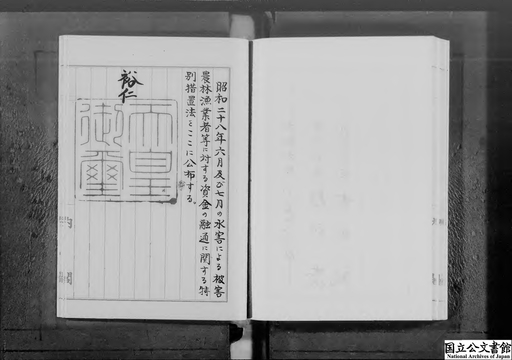 昭和二十八年六月及び七月の水害による被害
農林漁業者等に対する資金の融通に関する特
別措置法をここに公布する。
裕仁
天皇
御璽
国立公文書館
National Archives of Japan